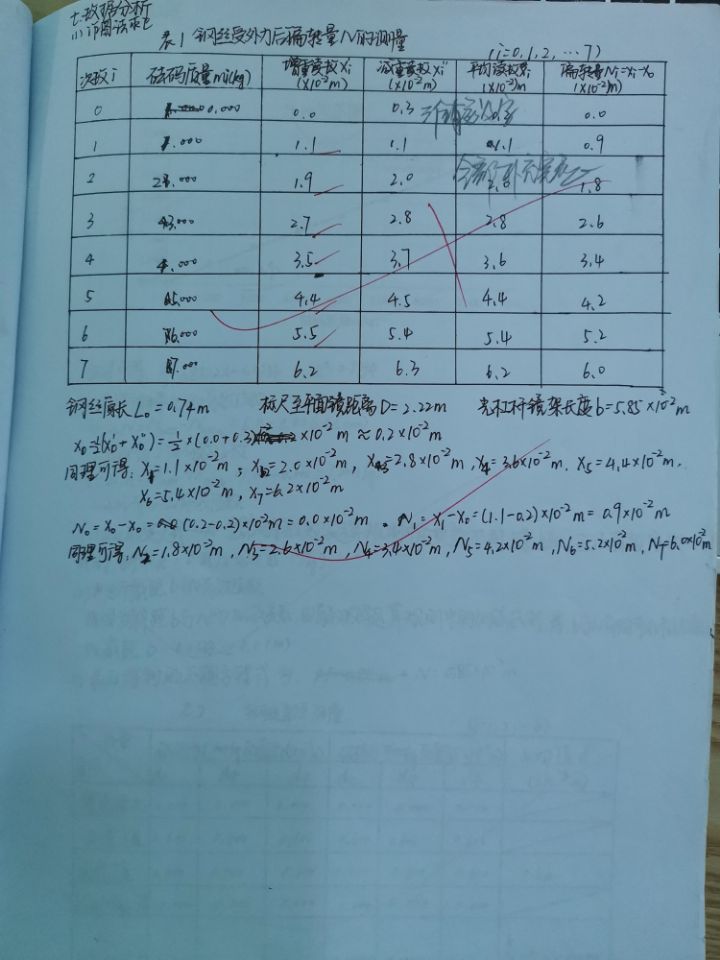 七.数据分析
(1) 作图法求E
表1 钢丝受外力后偏转量N的测量
(i=0,1,2,…7)
次数i 砝码质量mi(kg) 增重读数Xi' (×10⁻²m) 减重读数Xi'' (×10⁻²m) 平均读数Xi (×10⁻²m) 偏转量Ni=Xi-X0 (×10⁻²m)
0 0.000 0.0 0.3 0.0
1 1.000 1.1 1.1 1.1 0.9
2 2.000 1.9 2.0 2.0 1.8
3 3.000 2.7 2.8 2.8 2.6
4 4.000 3.5 3.7 3.6 3.4
5 5.000 4.4 4.5 4.4 4.2
6 6.000 5.5 5.4 5.4 5.2
7 7.000 6.2 6.3 6.2 6.0
钢丝原长 L₀=0.74m 标尺至平面镜距离D=2.22m 光杠杆镜架长度b=5.85×10⁻²m
X₀=½(X₀'+X₀'')=½×(0.0+0.3)×10⁻²m≈0.2×10⁻²m
同理可得: X₁=1.1×10⁻²m, X₂=2.0×10⁻²m, X₃=2.8×10⁻²m, X₄=3.6×10⁻²m. X₅=4.4×10⁻²m,
X₆=5.4×10⁻²m, X₇=6.2×10⁻²m
N₀=X₀-X₀=(0.2-0.2)×10⁻²m=0.0×10⁻²m. N₁=X₁-X₀=(1.1-0.2)×10⁻²m=0.9×10⁻²m
同理可得: N₂=1.8×10⁻²m, N₃=2.6×10⁻²m, N₄=3.4×10⁻²m, N₅=4.2×10⁻²m, N₆=5.2×10⁻²m, N₇=6.0×10⁻²m